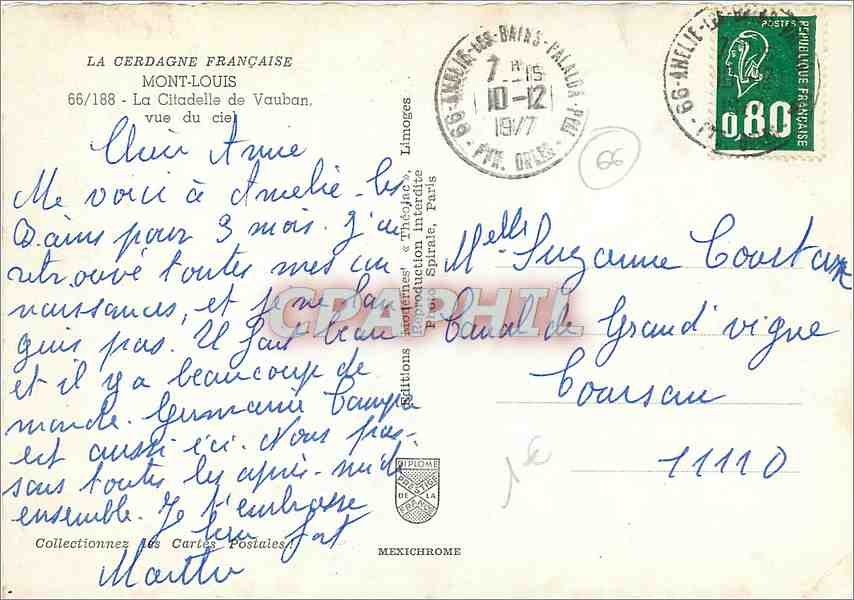 LA CERDAGNE FRANÇAISE
MONT-LOUIS
66/188 - La Citadelle de Vauban,
vue du ciel
Chère Annie
Me voici à Amélie-les
Bains pour 3 mois. J'ai
retrouvé toutes mes con
naissances, et je ne lan
guis pas. Il fait beau
et il y a beaucoup de
monde. Germaine
est aussi ici. Nous pas-
sons toutes les après-midi
ensemble. Je t'embrasse
bien fort
Collectionnez les Cartes Postales!
Marthe
Editions Modernes « Théojac », Limoges
Reproduction interdite
Photo Spirale, Paris
66-AMELIE-LES-BAINS-PALALDA-PPAL
7H-15
10-12
1977
PYR. ORLES
66
66-AMELIE-LES-BAINS
POSTES
REPUBLIQUE FRANÇAISE
0,80
Melle Suzanne Courtan
Canal de Grand'vigne
Coursan
11110
1€
DIPLOME
PRESTIGE
DE LA
FRANCE
MEXICHROME
CPAPHIL